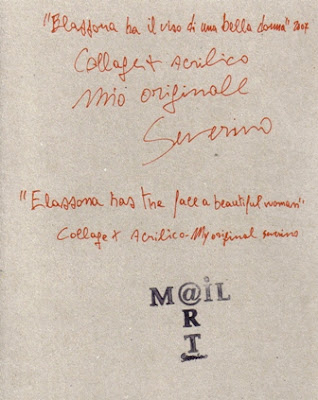 "Elassona ha il viso di una bella donna" 2007
Collage + acrilico
mio originale
Severino
"Elassona has the face a beautiful woman"
Collage + Acrilico - My original severino
M@iL
R
T